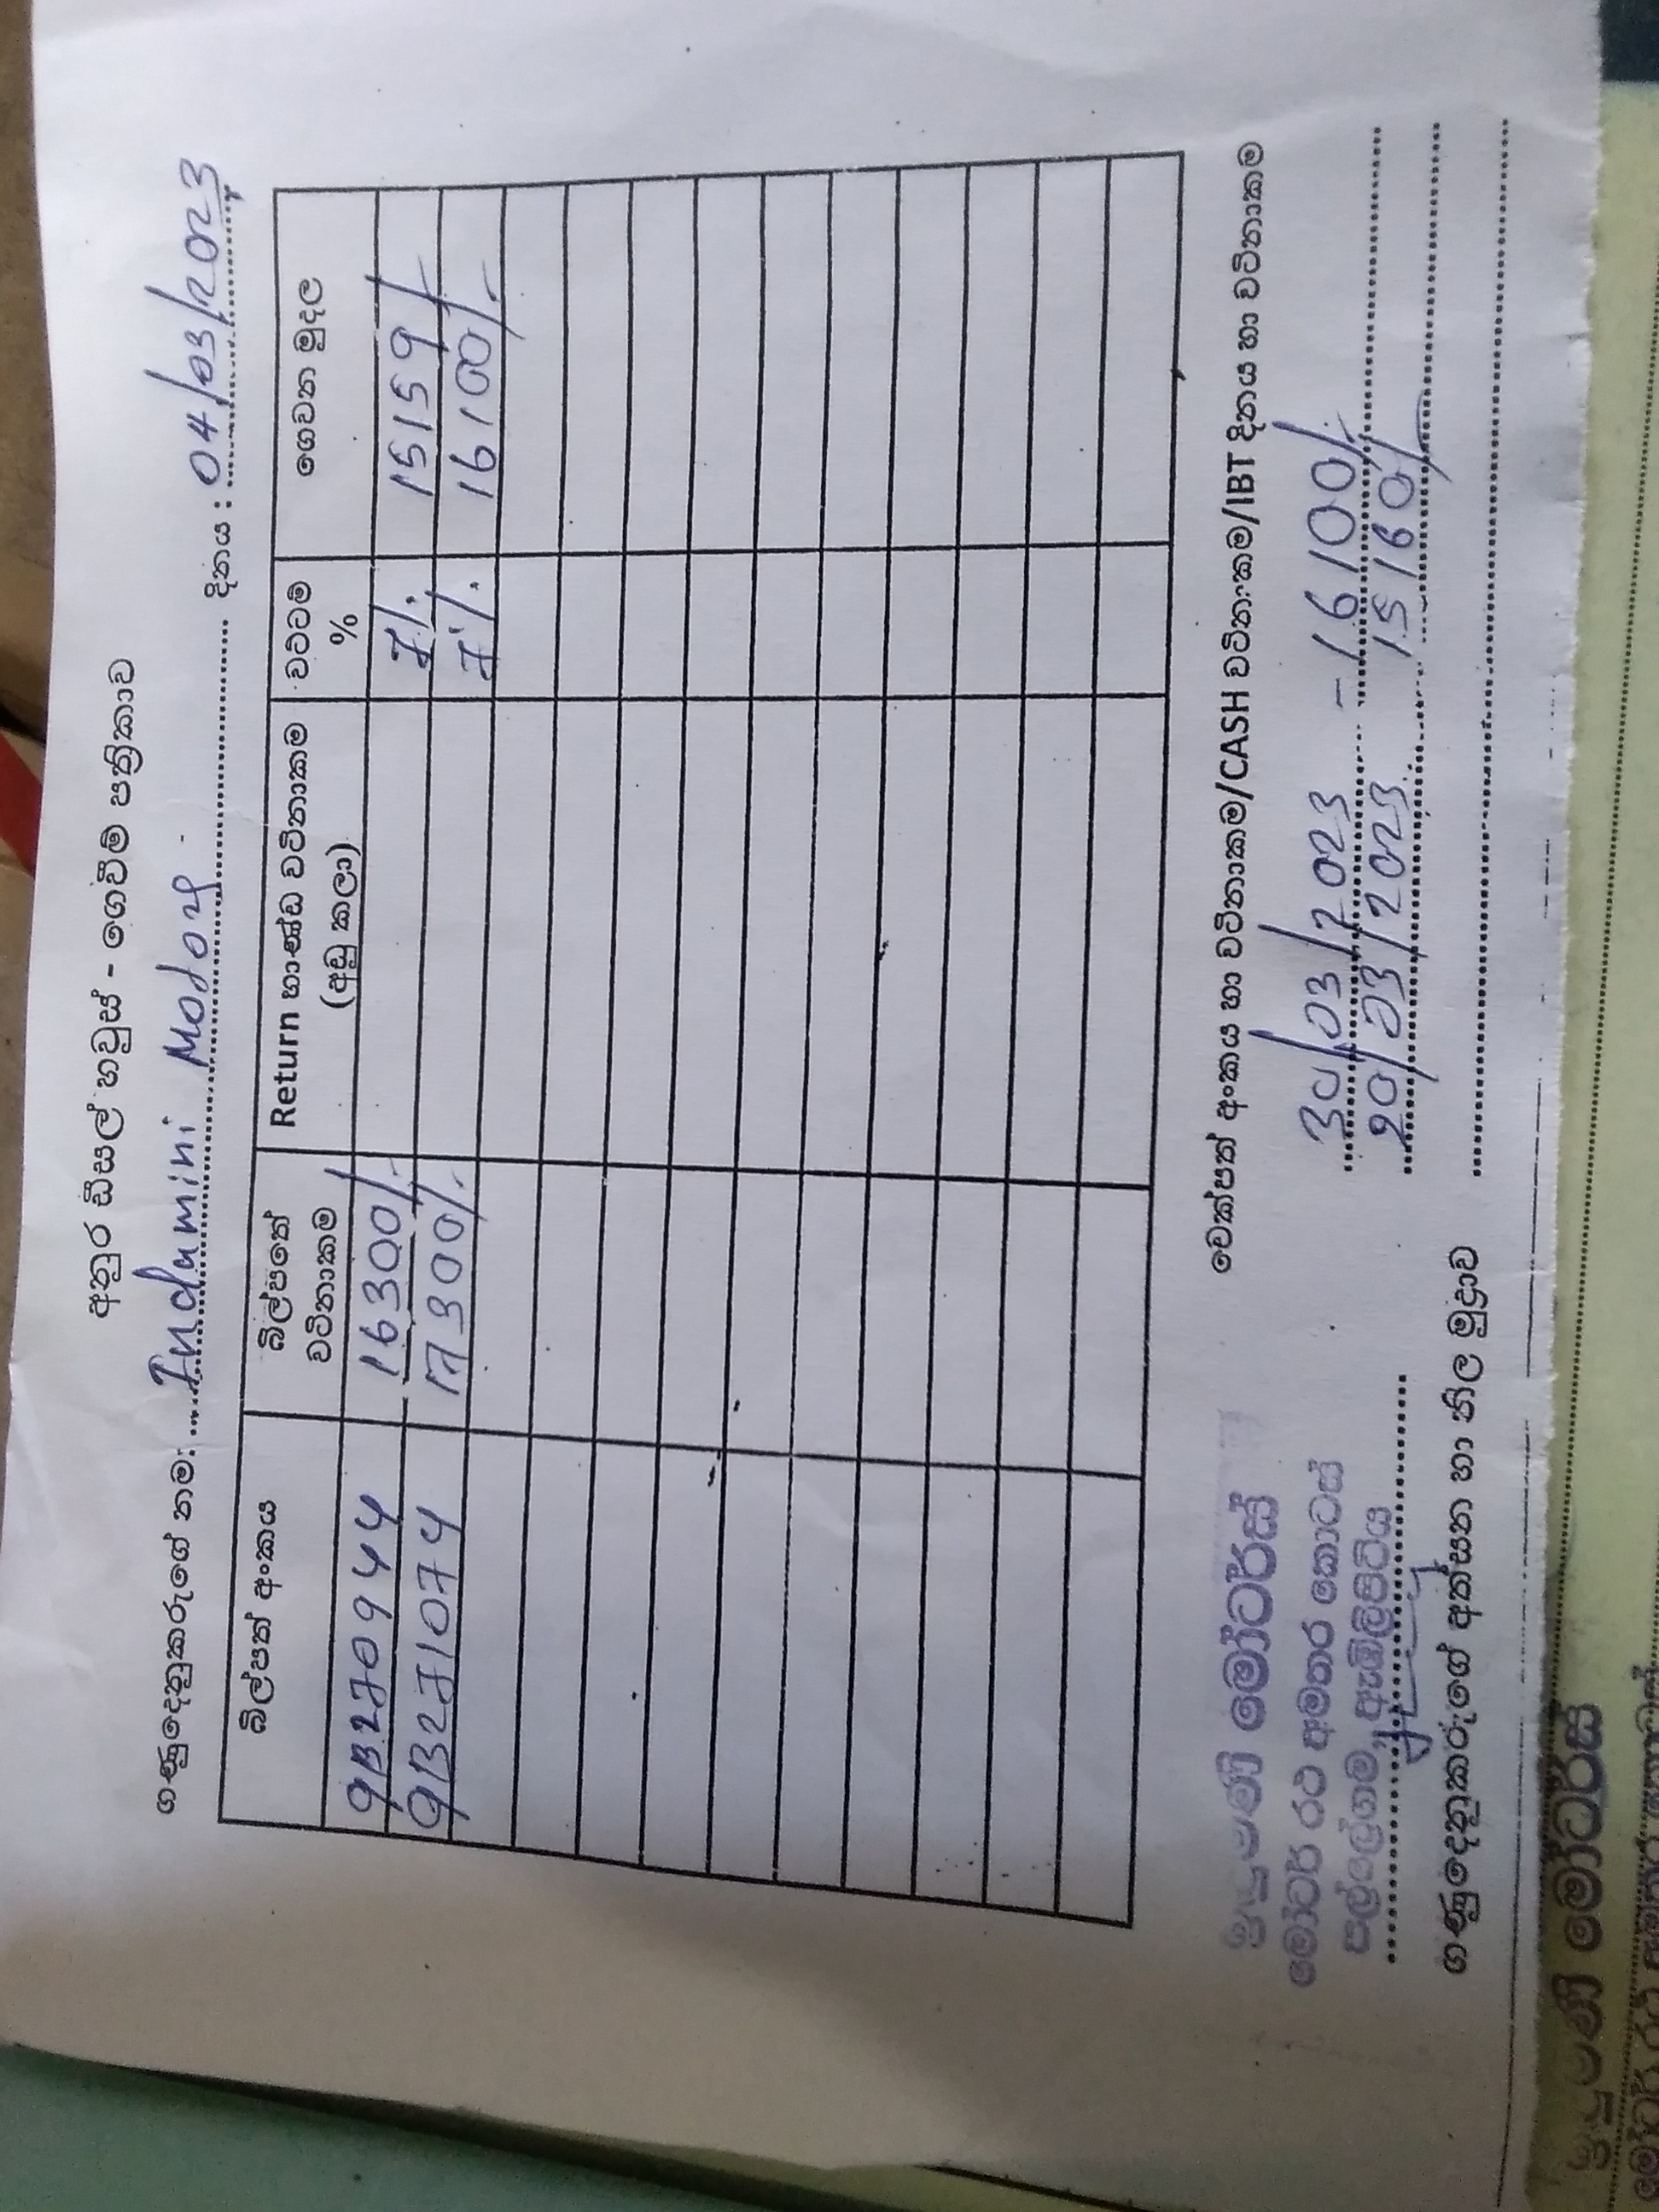 අනුර ඩීසල් හවුස් - ගෙවීම් පත්‍රිකාව
ගණුදෙනුකරුගේ නම: Indumini Motor දිනය : 04/03/2023
බිල්පත් අංකය බිල්පතේ වටිනාකම Return භාණ්ඩ වටිනාකම (අඩු කලා) වට්ටම් % ගෙවන මුදල
9B270944 16300/- 7% 15159/-
9B271074 17300/- 7% 16100/-
චෙක්පත් අංකය හා වටිනාකම/CASH වටිනාකම/IBT දිනය හා වටිනාකම
30/03/2023 - 16100/-
20/03/2023 15160/-
මෝටර්ස්
මෝටර් රථ අමතර කොටස්
පල්ලේගම, ඇඹිලිපිටිය
ගණුදෙනුකරුගේ අත්සන හා නිල මුද්‍රාව
මෝටර්ස්
මෝටර් රථ අමතර කොටස්